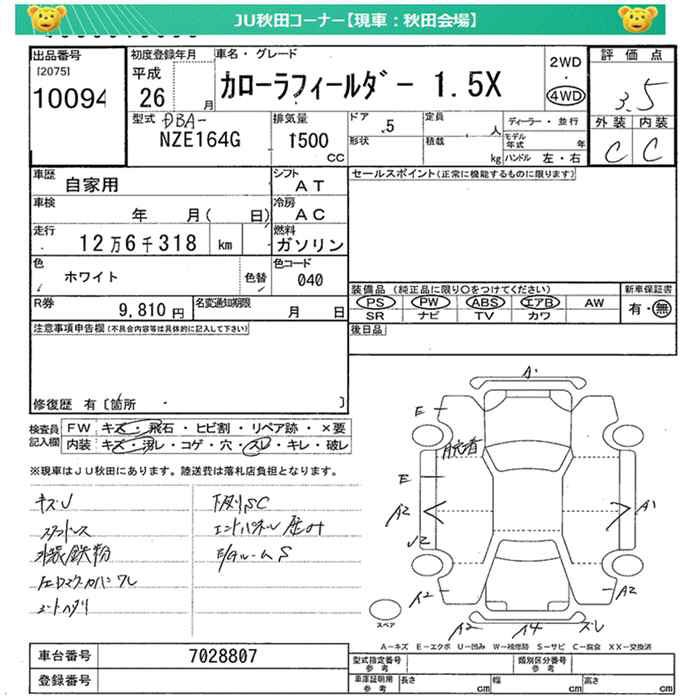 JU秋田コーナー【現車：秋田会場】
出品番号
[2075]
10094
初度登録年月
平成
26 月
車名・グレード
カローラフィールダー 1.5X
2WD
・
4WD
評価点
3.5
外装 内装
C C
型式 DBA-
NZE164G
排気量
1500
cc
ドア .5
形状
定員 人
積載 kg
ディーラー・並行
モデル年式 年
ハンドル 左・右
車歴 自家用
シフト AT
セールスポイント(正常に機能するものに限ります)
車検 年 月( 日)
冷房 AC
走行 12万6千318 km
燃料 ガソリン
色 ホワイト 色替
色コード 040
装備品 (純正品に限り○をつけてください)
新車保証書
PS PW ABS エアB AW
有・無
SR ナビ TV カワ
R券 9,810円
名変通知期限 月 日
後日品
注意事項申告欄(不具合内容等は具体的に記入して下さい)
修復歴 有〔箇所 〕
検査員記入欄
FW キズ・飛石・ヒビ割・リペア跡・×要
内装 キズ・汚レ・コゲ・穴・スレ・キレ・破レ
※現車はJU秋田にあります。陸送費は落札店負担となります。
キズJ
下廻りSC
外装鉄粉
A1
E
E
A2
A1
A2
A2
A2
A4
スレ
スペア
A－キズ E－エクボ U－凹み W－補修跡 S－サビ C－腐食 XX－交換済
車台番号 7028807
登録番号
型式指定番号
参考
類別区分番号
参考
車庫証明用
参考
長さ cm
幅 cm
高さ cm